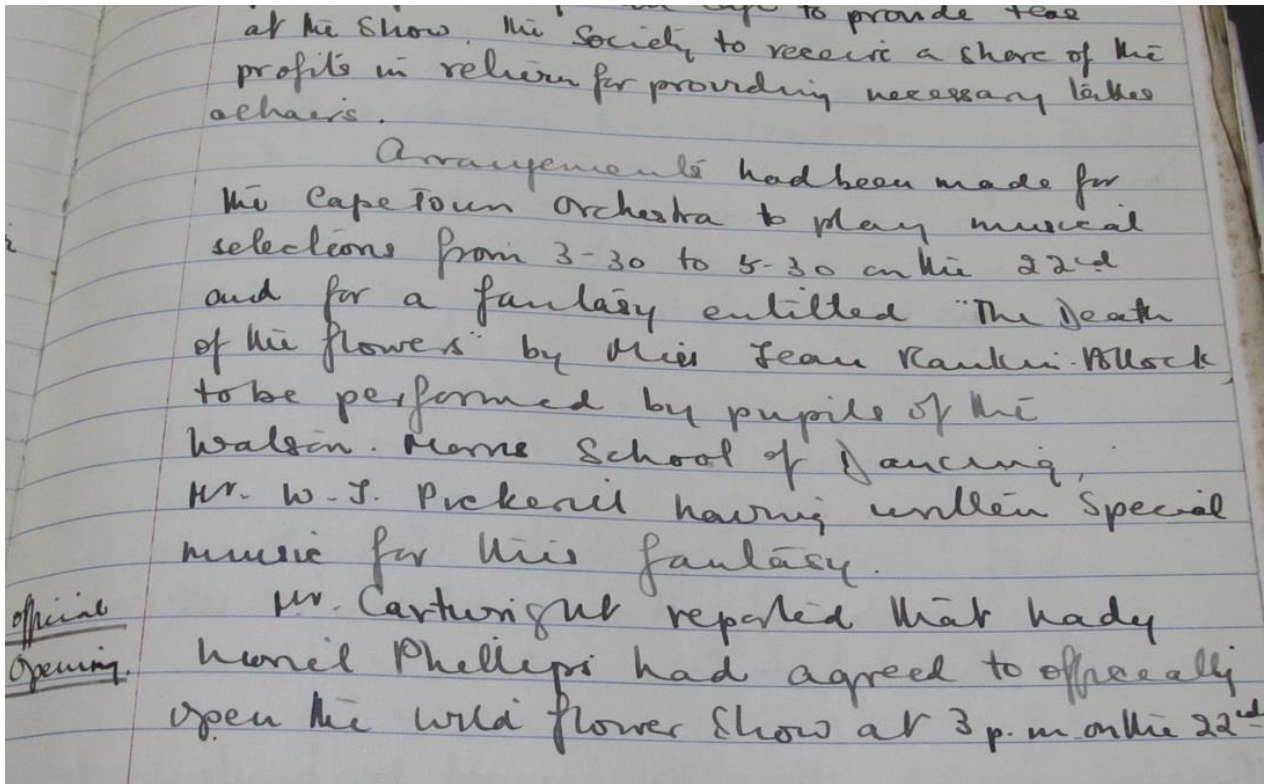 to provide teas
at the Show, the Society to receive a share of the
profits in return for providing necessary tables
& chairs.
Arrangements had been made for
the Cape Town Orchestra to play musical
selections from 3-30 to 5-30 on the 22nd
and for a fantasy entitled "The Death
of the flowers" by Miss Jean Rankin-Pollock,
to be performed by pupils of the
Watson-Morris School of Dancing,
Mr. W. J. Pickerill having written special
music for this fantasy.
official
Mr. Cartwright reported that Lady
opening.
Lionel Phillips had agreed to officially
open the wild flower Show at 3 p.m. on the 22nd